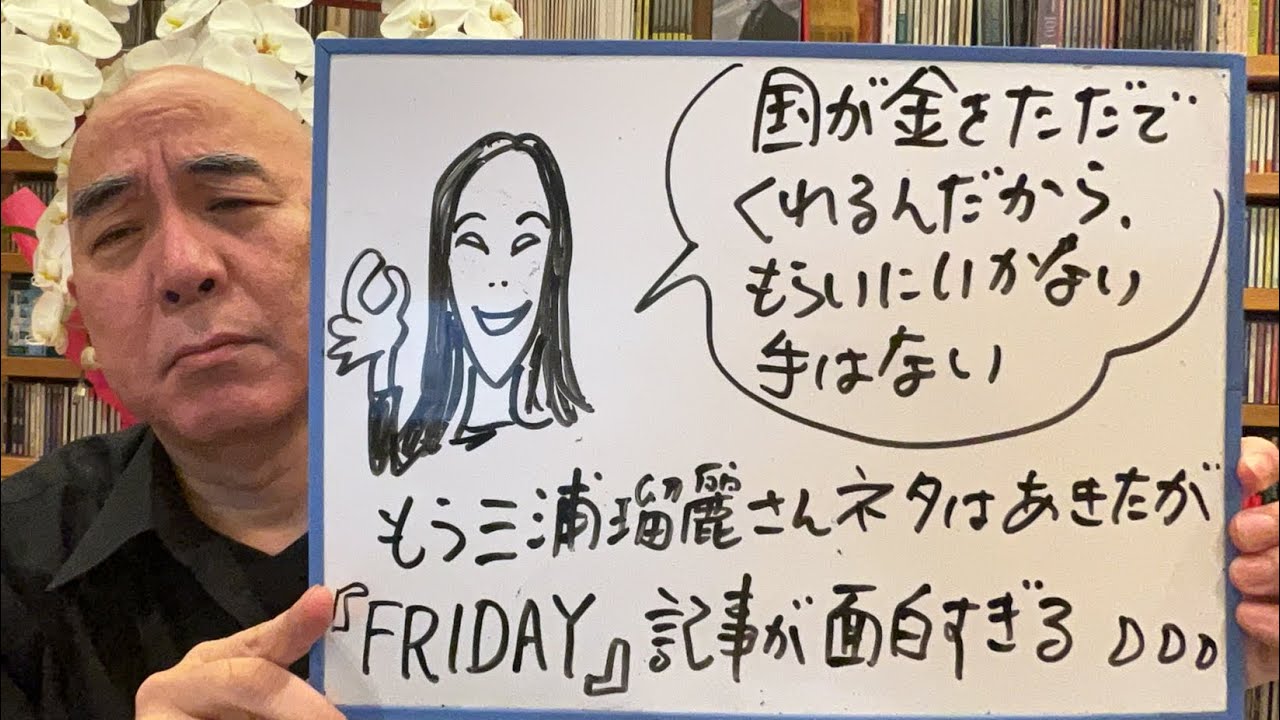 国が金をただで
くれるんだから、
もらいにいかない
手はない
もう三浦瑠麗さんネタはあきたが
『FRIDAY』記事が面白すぎる